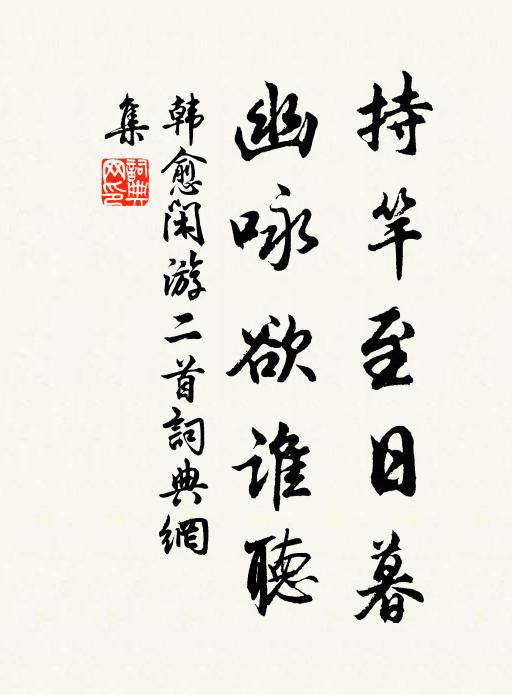 持竿至日暮
幽咏欲谁聽
韩愈闲游二首詞典網
集
詞典网印